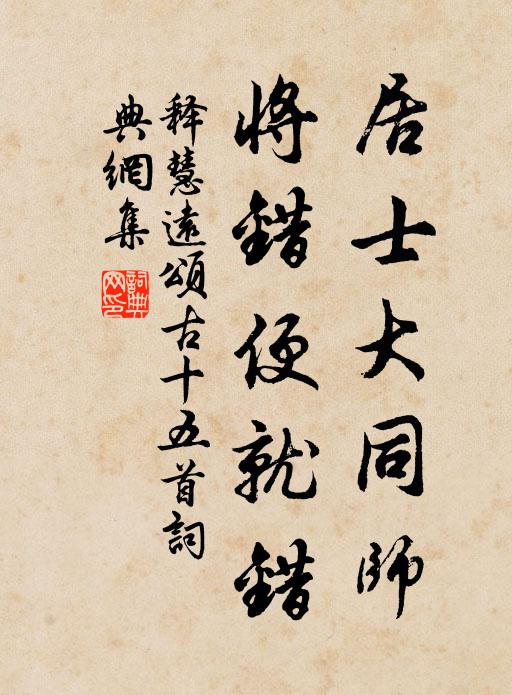 居士大同師
將錯便就錯
释慧遠頌古十五首詞
典網集
詞典網印